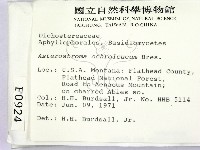 國立自然科學博物館
NATIONAL MUSEUM OF NATURAL SCIENCE
TAICHUNG, TAIWAN, R.O.CHINA
Lichostereaceae,
Aphyllophorales, Basidiomycetes
Asterostroma ochroleucum Bres.
Loc.: U.S.A. Montana: Flathead County,
Flathead National Forest,
Road McGinnis Mountain,
on charred Abies sp.
Col.: H.H. Burdsall, Jr. No. HHB 5114
Date: Jun. 09, 1971
Det.: H.H. Burdsall, Jr.
F0924